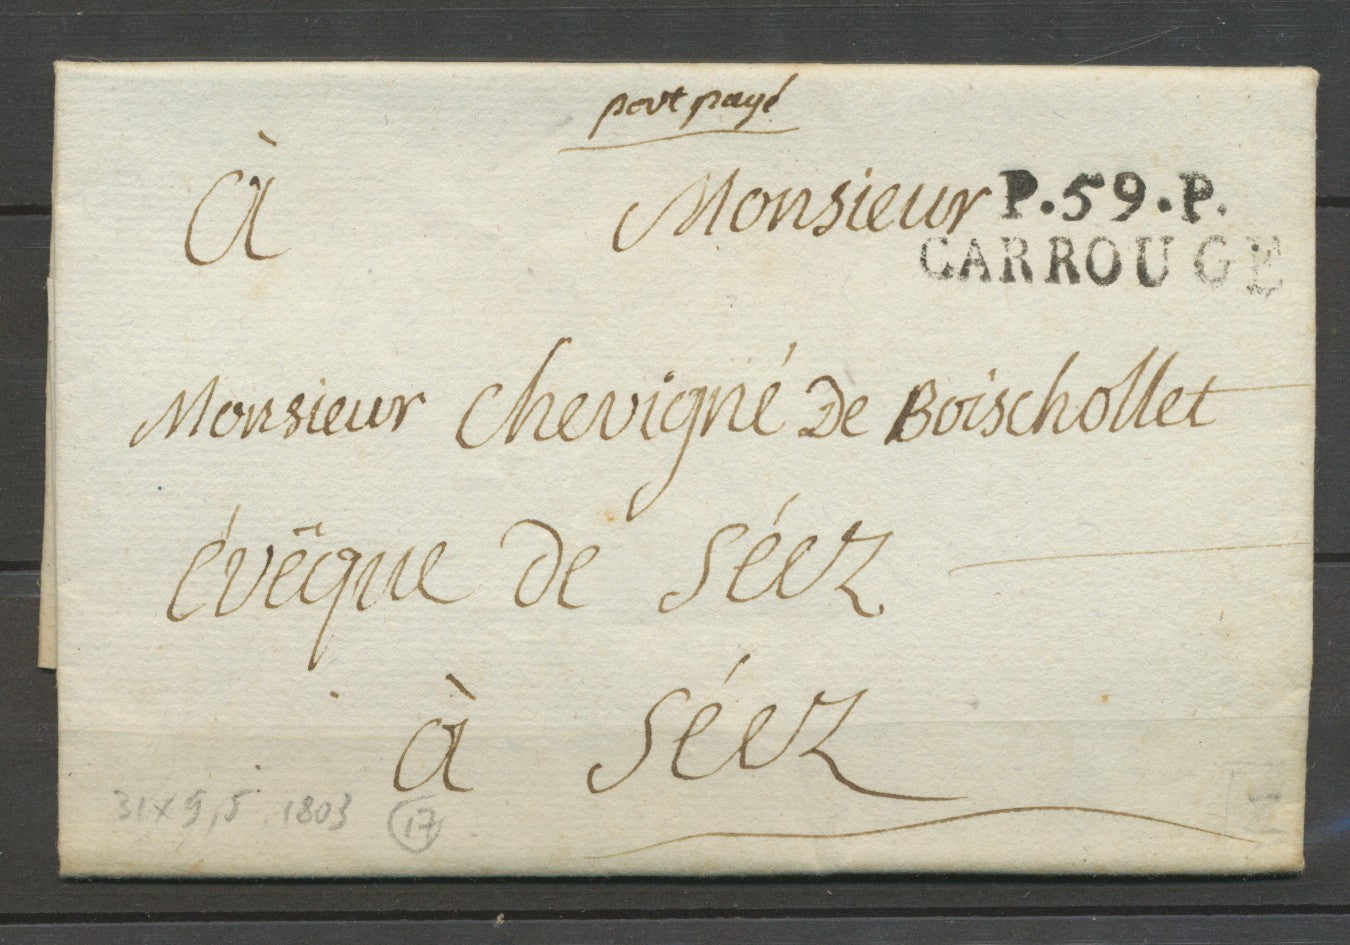 port payé
À Monsieur P.59.P.
CARROUGE
Monsieur Chevigné De Boischollet
évêque de Séez
à Séez
31 x 9,5. 1803 17